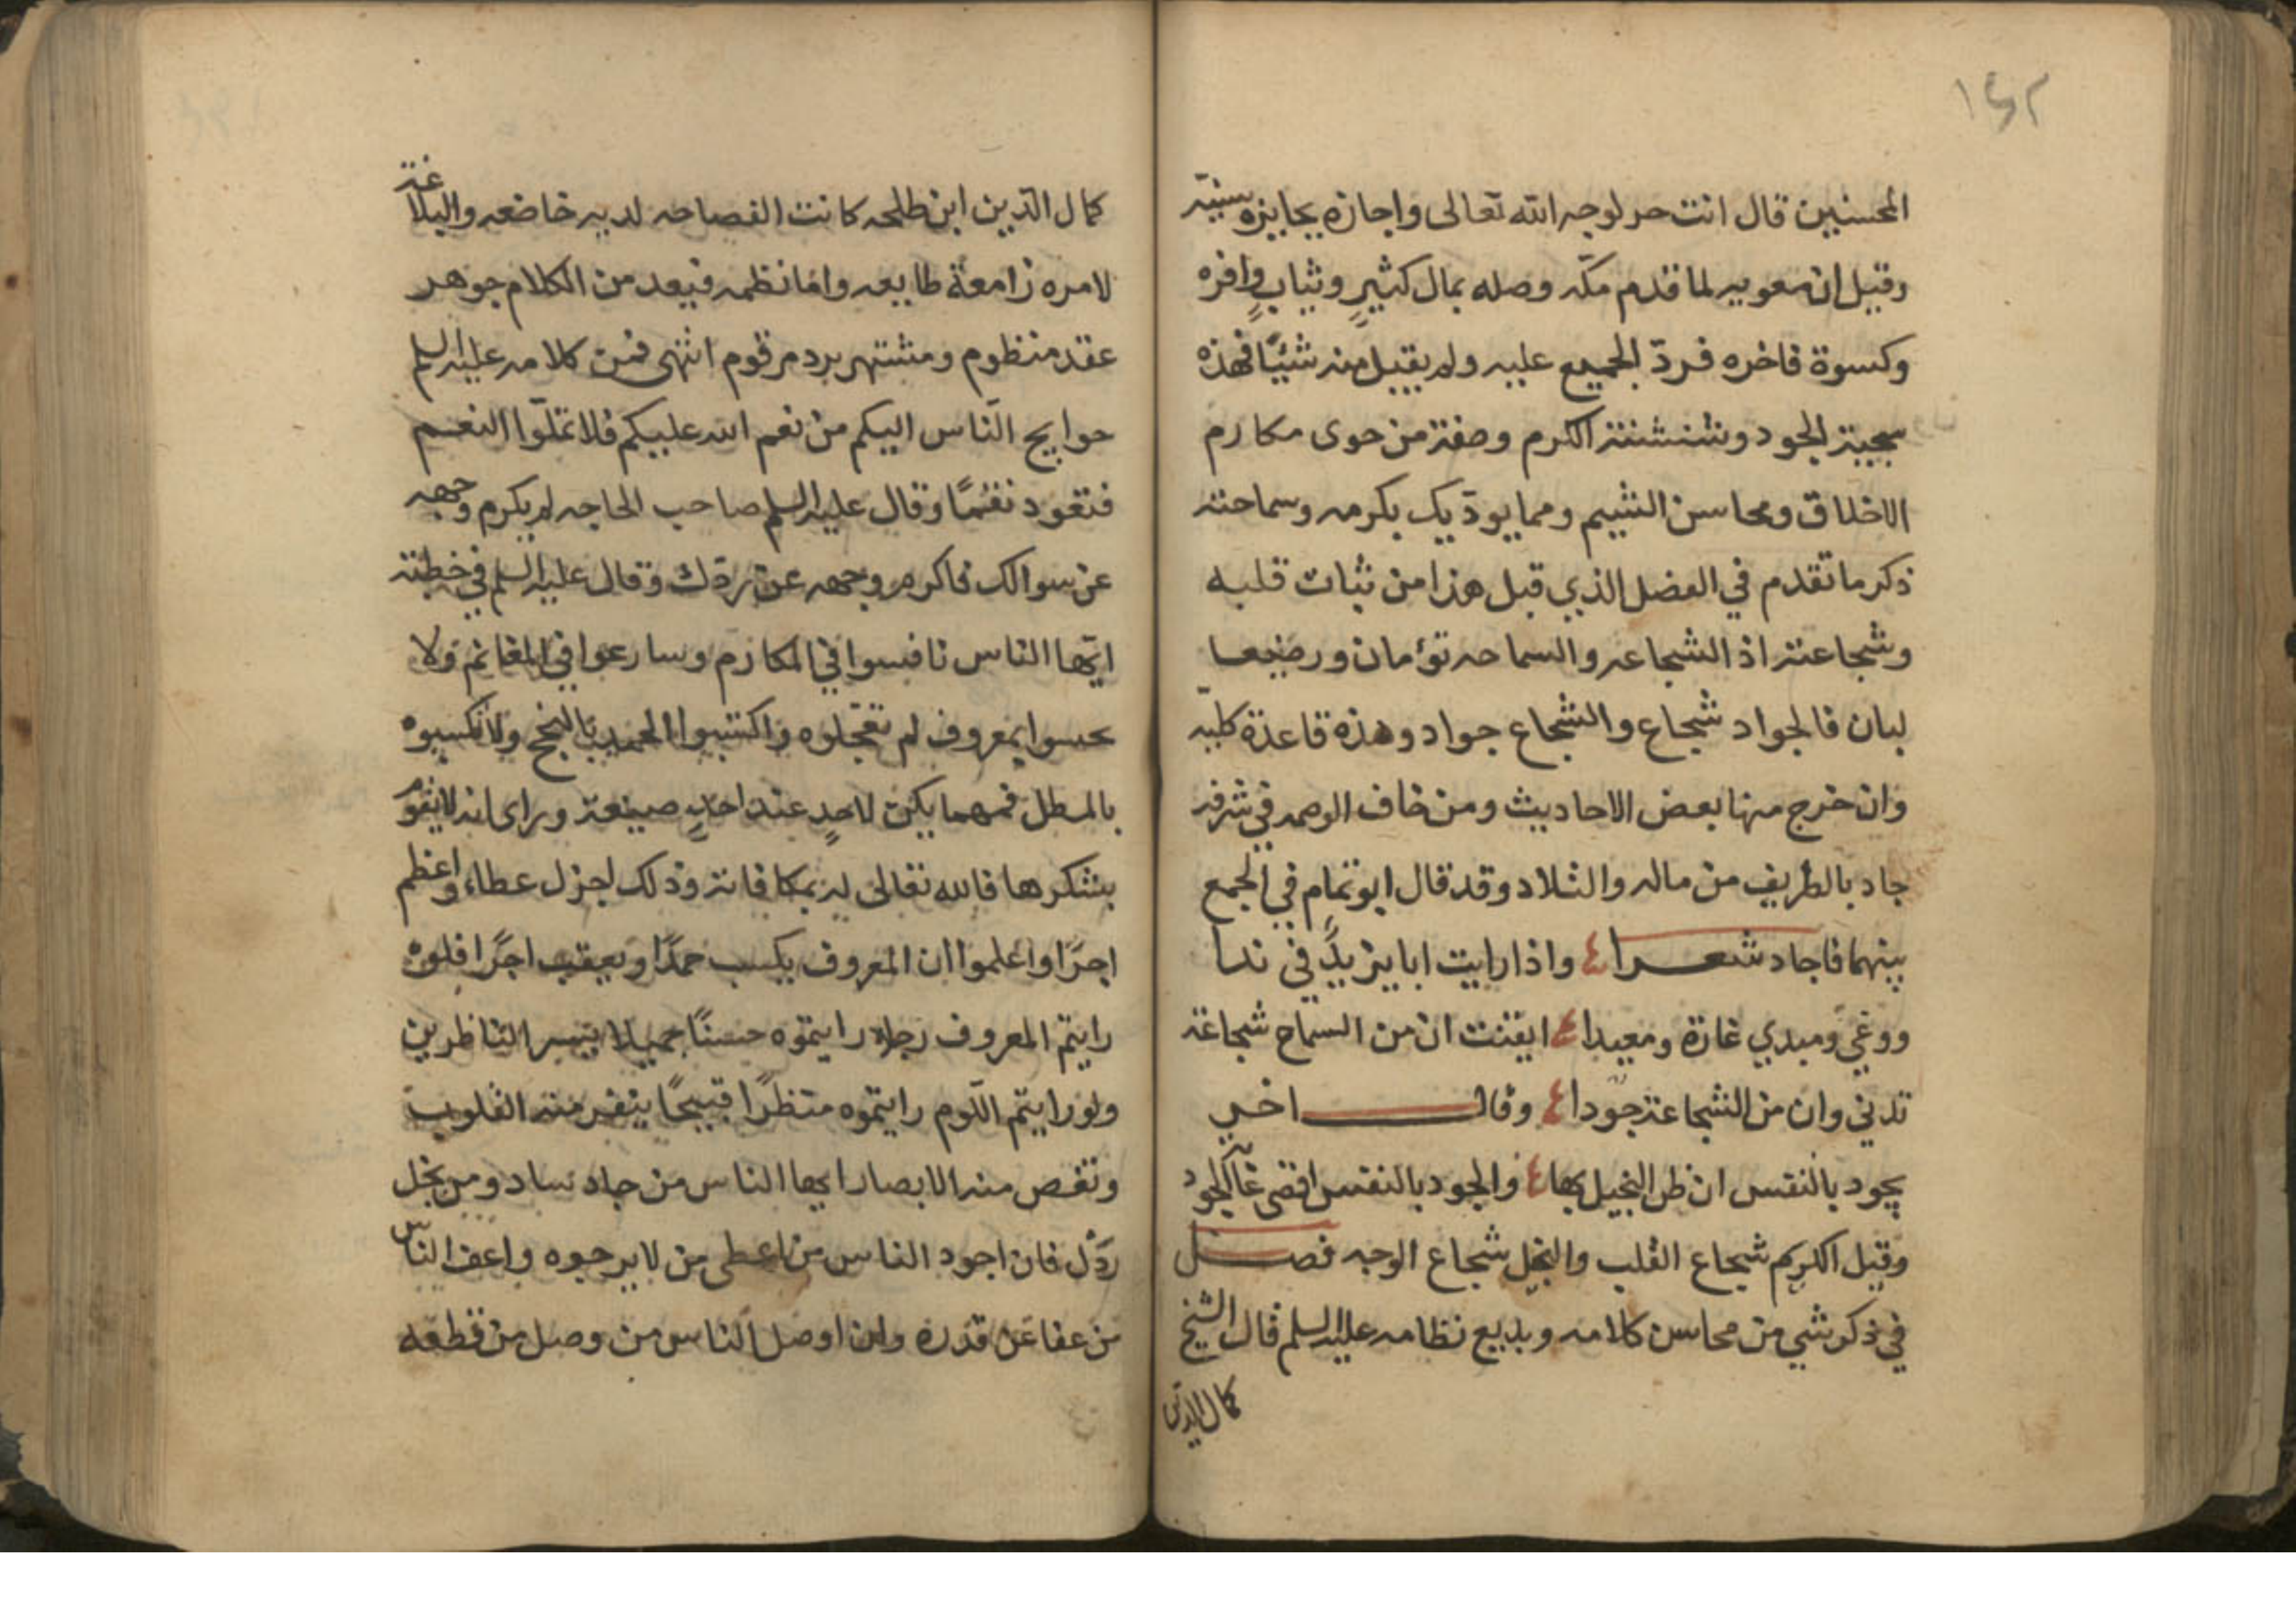 ١٤٢
المحسنين قال انت حر لوجه الله تعالى واجازه بجايزه سنيه
وقيل ان معويه لما قدم مكّه وصله بمال كثيرٍ وثيابٍ وافره
وكسوة فاخره فردّ الجميع عليه ولم يقبل منه شيئًا فهذه
سجية الجود وشنشنة الكرم وصفة من حوى مكارم
الاخلاق ومحاسن الشيم ومما يودّيك بكرمه وسماحته
ذكر ما تقدم في الفضل الذي قبل هذا من ثبات قلبه
وشجاعته اذ الشجاعه والسماحه تؤمان ورضيعا
لبان فالجواد شجاع والشجاع جواد وهذه قاعدة كليّه
وان خرج منها بعض الاحاديث ومن خاف الوصمه في شرفه
جاد بالطريف من ماله والتلاد وقد قال ابو تمام في الجمع
بينهما فاجاد شعرا واذا رايت ابا يزيدٍ في ندا
ووغى ومبدي غارة ومعيدا ايقنت ان من السماح شجاعة
تدني وان من الشجاعة جودا وقال اخر
يجود بالنفس ان ظن البخيل بها والجود بالنفس اقصى غاية الجود
وقيل الكريم شجاع القلب والبخل شجاع الوجه فصل
في ذكر شي من محاسن كلامه وبديع نظامه عليه السلم قال الشيخ
كمال الدين
كمال الدّين ابن طلحه كانت الفصاحه لديه خاضعه والبلاغة
لامره زامعة طايعه واما نظمه فيعد من الكلام جوهر
عقد منظوم ومشتهر برد مرقوم انتهى فمن كلامه عليه السلم
حوايج النّاس اليكم من نعم الله عليكم فلا تملّوا النعم
فتعود نقمًا وقال عليه السلم صاحب الحاجه لم يكرم وجهه
عن سوالك فاكرم وجهه عن ردّك وقال عليه السلم في خطبته
ايّها الناس نافسوا في المكارم وسارعوا في المغانم ولا
تحسبوا بمعروف لم تعجّلوه واكتسبوا الحمد بالنجح ولا تكسبوه
بالمطل فمهما يكن لاحدٍ عند احدٍ صنيعة وراى انه لا يقوم
بشكرها فالله تعالى له بمكافاته وذلك اجزل عطاء واعظم
اجرًا واعلموا ان المعروف يكسب حمدًا ويعقب اجرًا فلوه
رايتم المعروف رجلا رايتموه حسنًا جميلا يسر الناظرين
ولو رايتم اللّوم رايتموه منظرًا قبيحًا ينفر منه القلوب
وتغص منه الابصار ايها الناس من جاد ساد ومن بخل
ردّل فان اجود الناس من اعطى من لا يرجوه واعف الناس
من عفا عن قدره وان اوصل الناس من وصل من قطعه